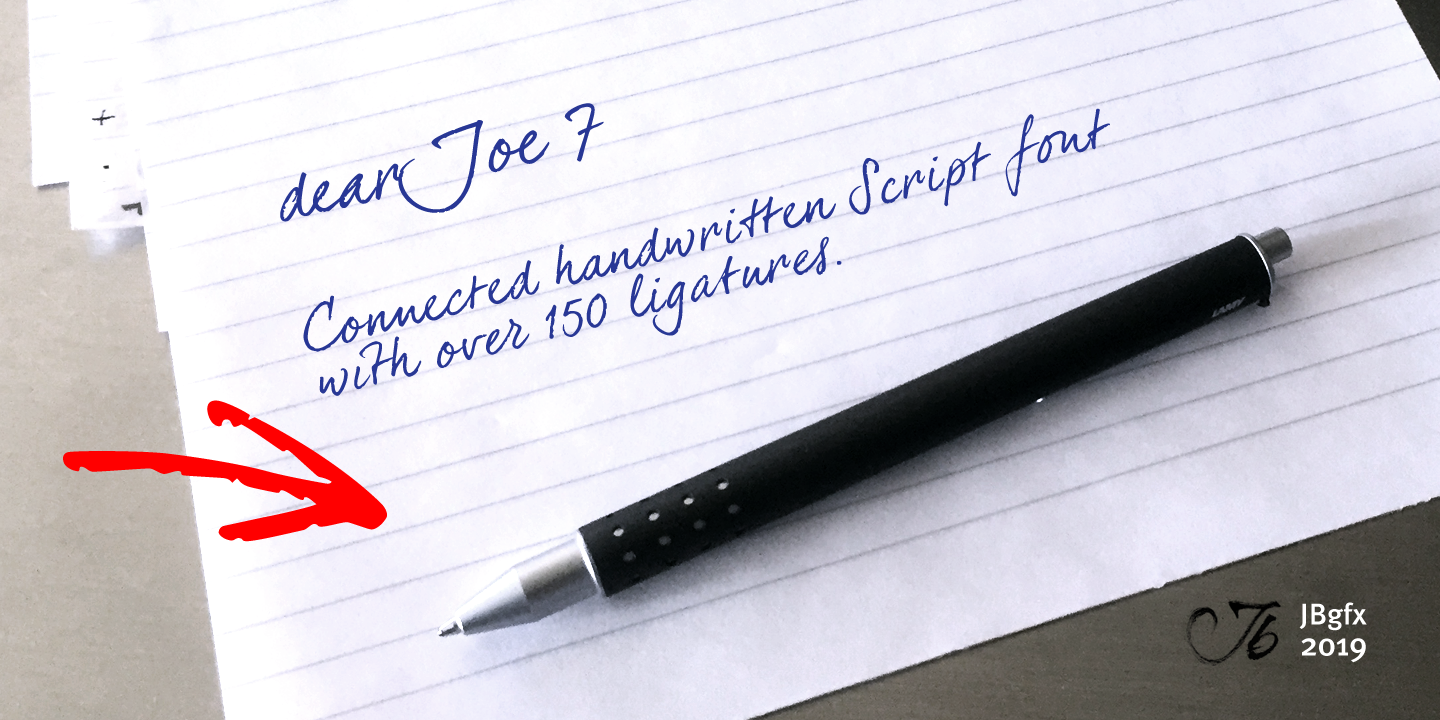 dear Joe 7
Connected handwritten Script font
with over 150 ligatures.
LAMY
JB
JBgfx
2019